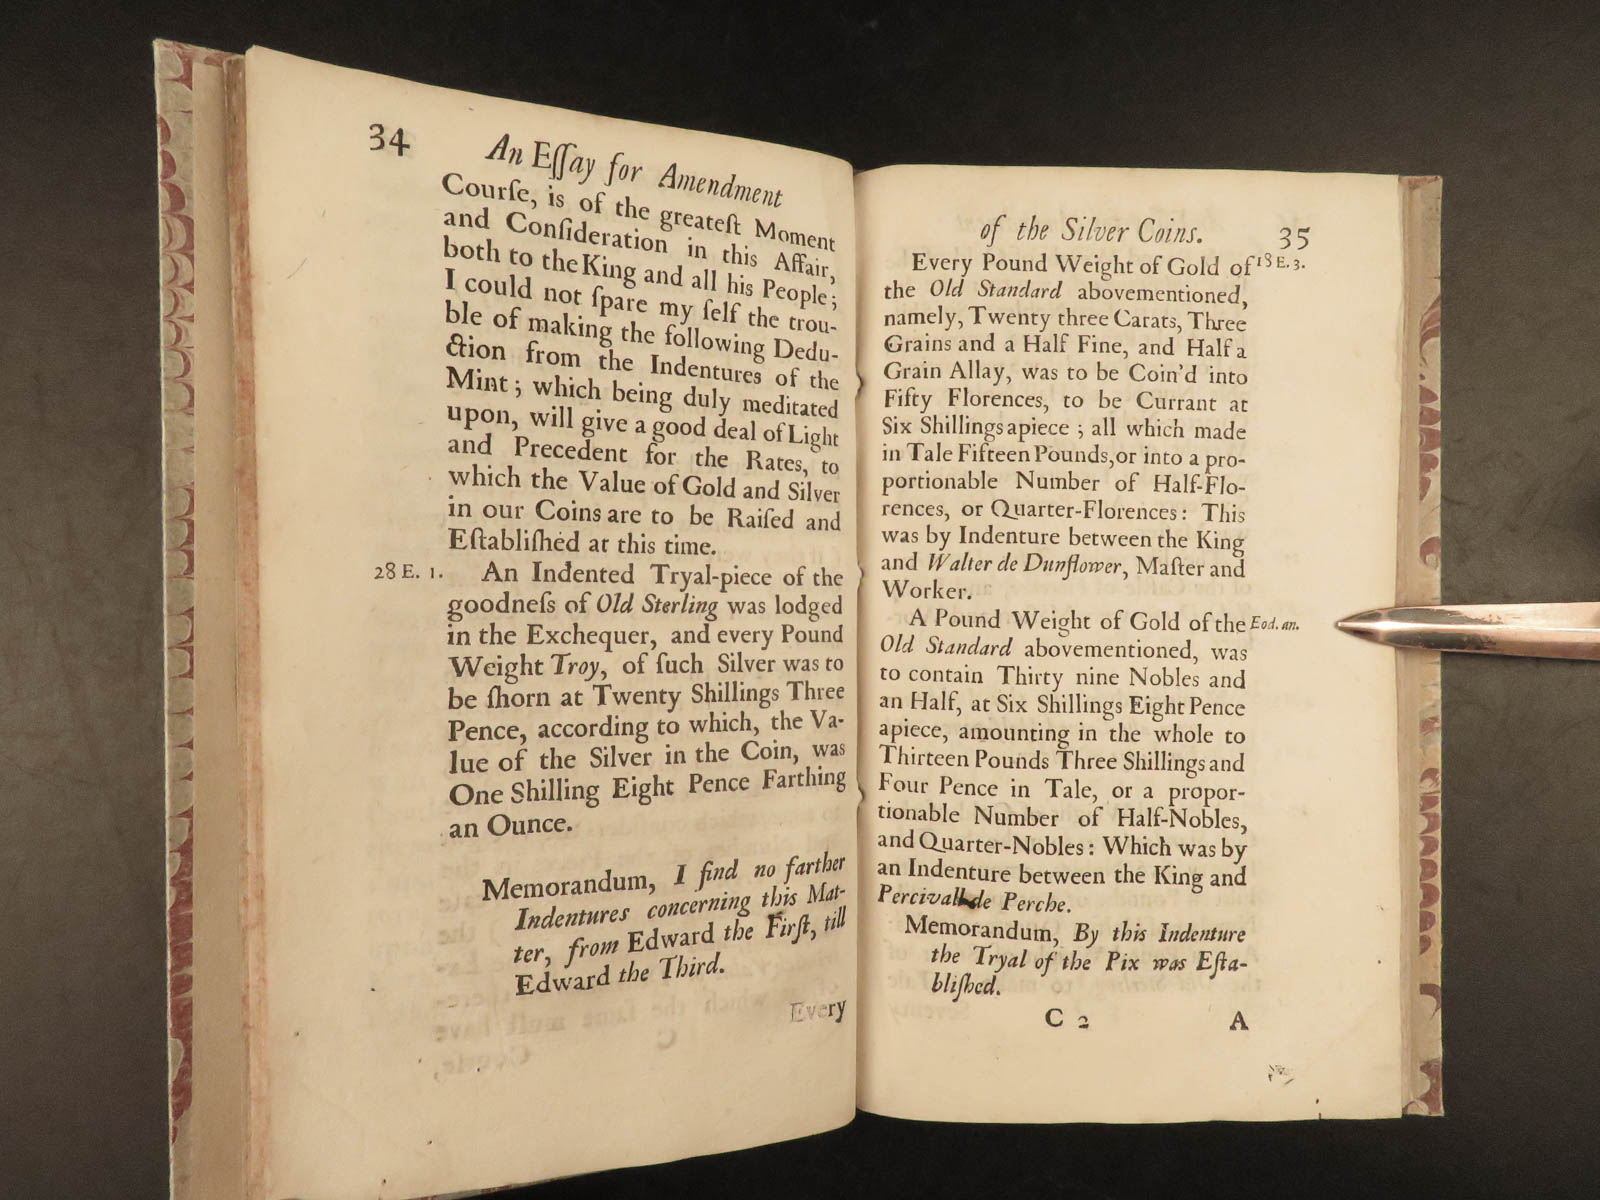 34
An Eſſay for Amendment
Courſe, is of the greateſt Moment
and Conſideration in this Affair,
both to the King and all his People;
I could not ſpare my ſelf the trou-
ble of making the following Dedu-
ction from the Indentures of the
Mint; which being duly meditated
upon, will give a good deal of Light
and Precedent for the Rates, to
which the Value of Gold and Silver
in our Coins are to be Raiſed and
Eſtabliſhed at this time.
28 E. 1. An Indented Tryal-piece of the
goodneſs of Old Sterling was lodged
in the Exchequer, and every Pound
Weight Troy, of ſuch Silver was to
be ſhorn at Twenty Shillings Three
Pence, according to which, the Va-
lue of the Silver in the Coin, was
One Shilling Eight Pence Farthing
an Ounce.
Memorandum, I find no farther
Indentures concerning this Mat-
ter, from Edward the Firſt, till
Edward the Third.
Every
of the Silver Coins. 35
Every Pound Weight of Gold of 18 E. 3.
the Old Standard abovementioned,
namely, Twenty three Carats, Three
Grains and a Half Fine, and Half a
Grain Allay, was to be Coin'd into
Fifty Florences, to be Currant at
Six Shillings apiece; all which made
in Tale Fifteen Pounds, or into a pro-
portionable Number of Half-Flo-
rences, or Quarter-Florences: This
was by Indenture between the King
and Walter de Dunflower, Maſter and
Worker.
A Pound Weight of Gold of the Eod. an.
Old Standard abovementioned, was
to contain Thirty nine Nobles and
an Half, at Six Shillings Eight Pence
apiece, amounting in the whole to
Thirteen Pounds Three Shillings and
Four Pence in Tale, or a propor-
tionable Number of Half-Nobles,
and Quarter-Nobles: Which was by
an Indenture between the King and
Percivall de Perche.
Memorandum, By this Indenture
the Tryal of the Pix was Eſta-
bliſhed.
C 2 A